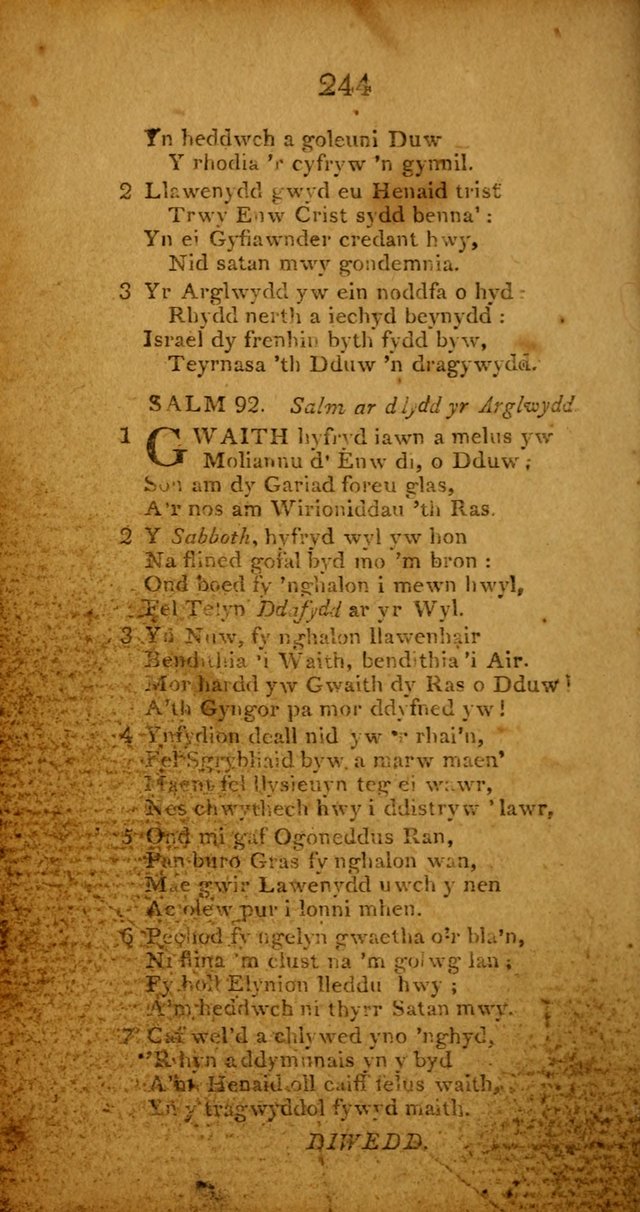 244
Yn heddwch a goleuni Duw
Y rhodia 'r cyfryw 'n gynnil.
2 Llawenydd gwyd eu Henaid trist
Trwy Enw Crist sydd benna' :
Yn ei Gyfiawnder credant hwy,
Nid satan mwy gondemnia.
3 Yr Arglwydd yw ein noddfa o hyd
Rhydd nerth a iechyd beynydd :
Israel dy frenhin byth fydd byw,
Teyrnasa 'th Dduw 'n dragywydd.
SALM 92. Salm ar dlydd yr Arglwydd
1 GWAITH hyfryd iawn a melus yw
Moliannu d' Enw di, o Dduw ;
Son am dy Gariad foreu glas,
A'r nos am Wirioniddau 'th Ras.
2 Y Sabboth, hyfryd wyl yw hon
Na flined gofal byd mo 'm bron :
Ond boed fy 'nghalon i mewn hwyl,
Fel Telyn Ddafydd ar yr Wyl.
3 Yn Nuw, fy nghalon llawenhair
Bendithia 'i Waith, bendithia 'i Air.
Mor hardd yw Gwaith dy Ras o Dduw !
A'th Gyngor pa mor ddyfned yw !
4 Ynfydion deall nid yw 'r rhai'n,
Fel Sgrybliaid byw, a marw maen'
fel llysieuyn teg ei wawr,
Nes chwythech hwy i ddistryw 'lawr,
5 Ond mi gaf Ogoneddus Ran,
Pan buro Gras fy nghalon wan,
Mae gwir Lawenydd uwch y nen
Ac olew pur i lonni mhen.
6 Pechod fy ngelyn gwaetha o'r bla'n,
Ni flina 'm clust na 'm golwg lan ;
Fy holl Elynion lleddu hwy ;
A'm heddwch ni thyrr Satan mwy.
7 Caf wel'd a chlywed yno 'nghyd,
'R hyn a ddymunais yn y byd
A'm Henaid oll caiff felus waith,
Yn y tragwyddol fywyd maith.
DIWEDD.